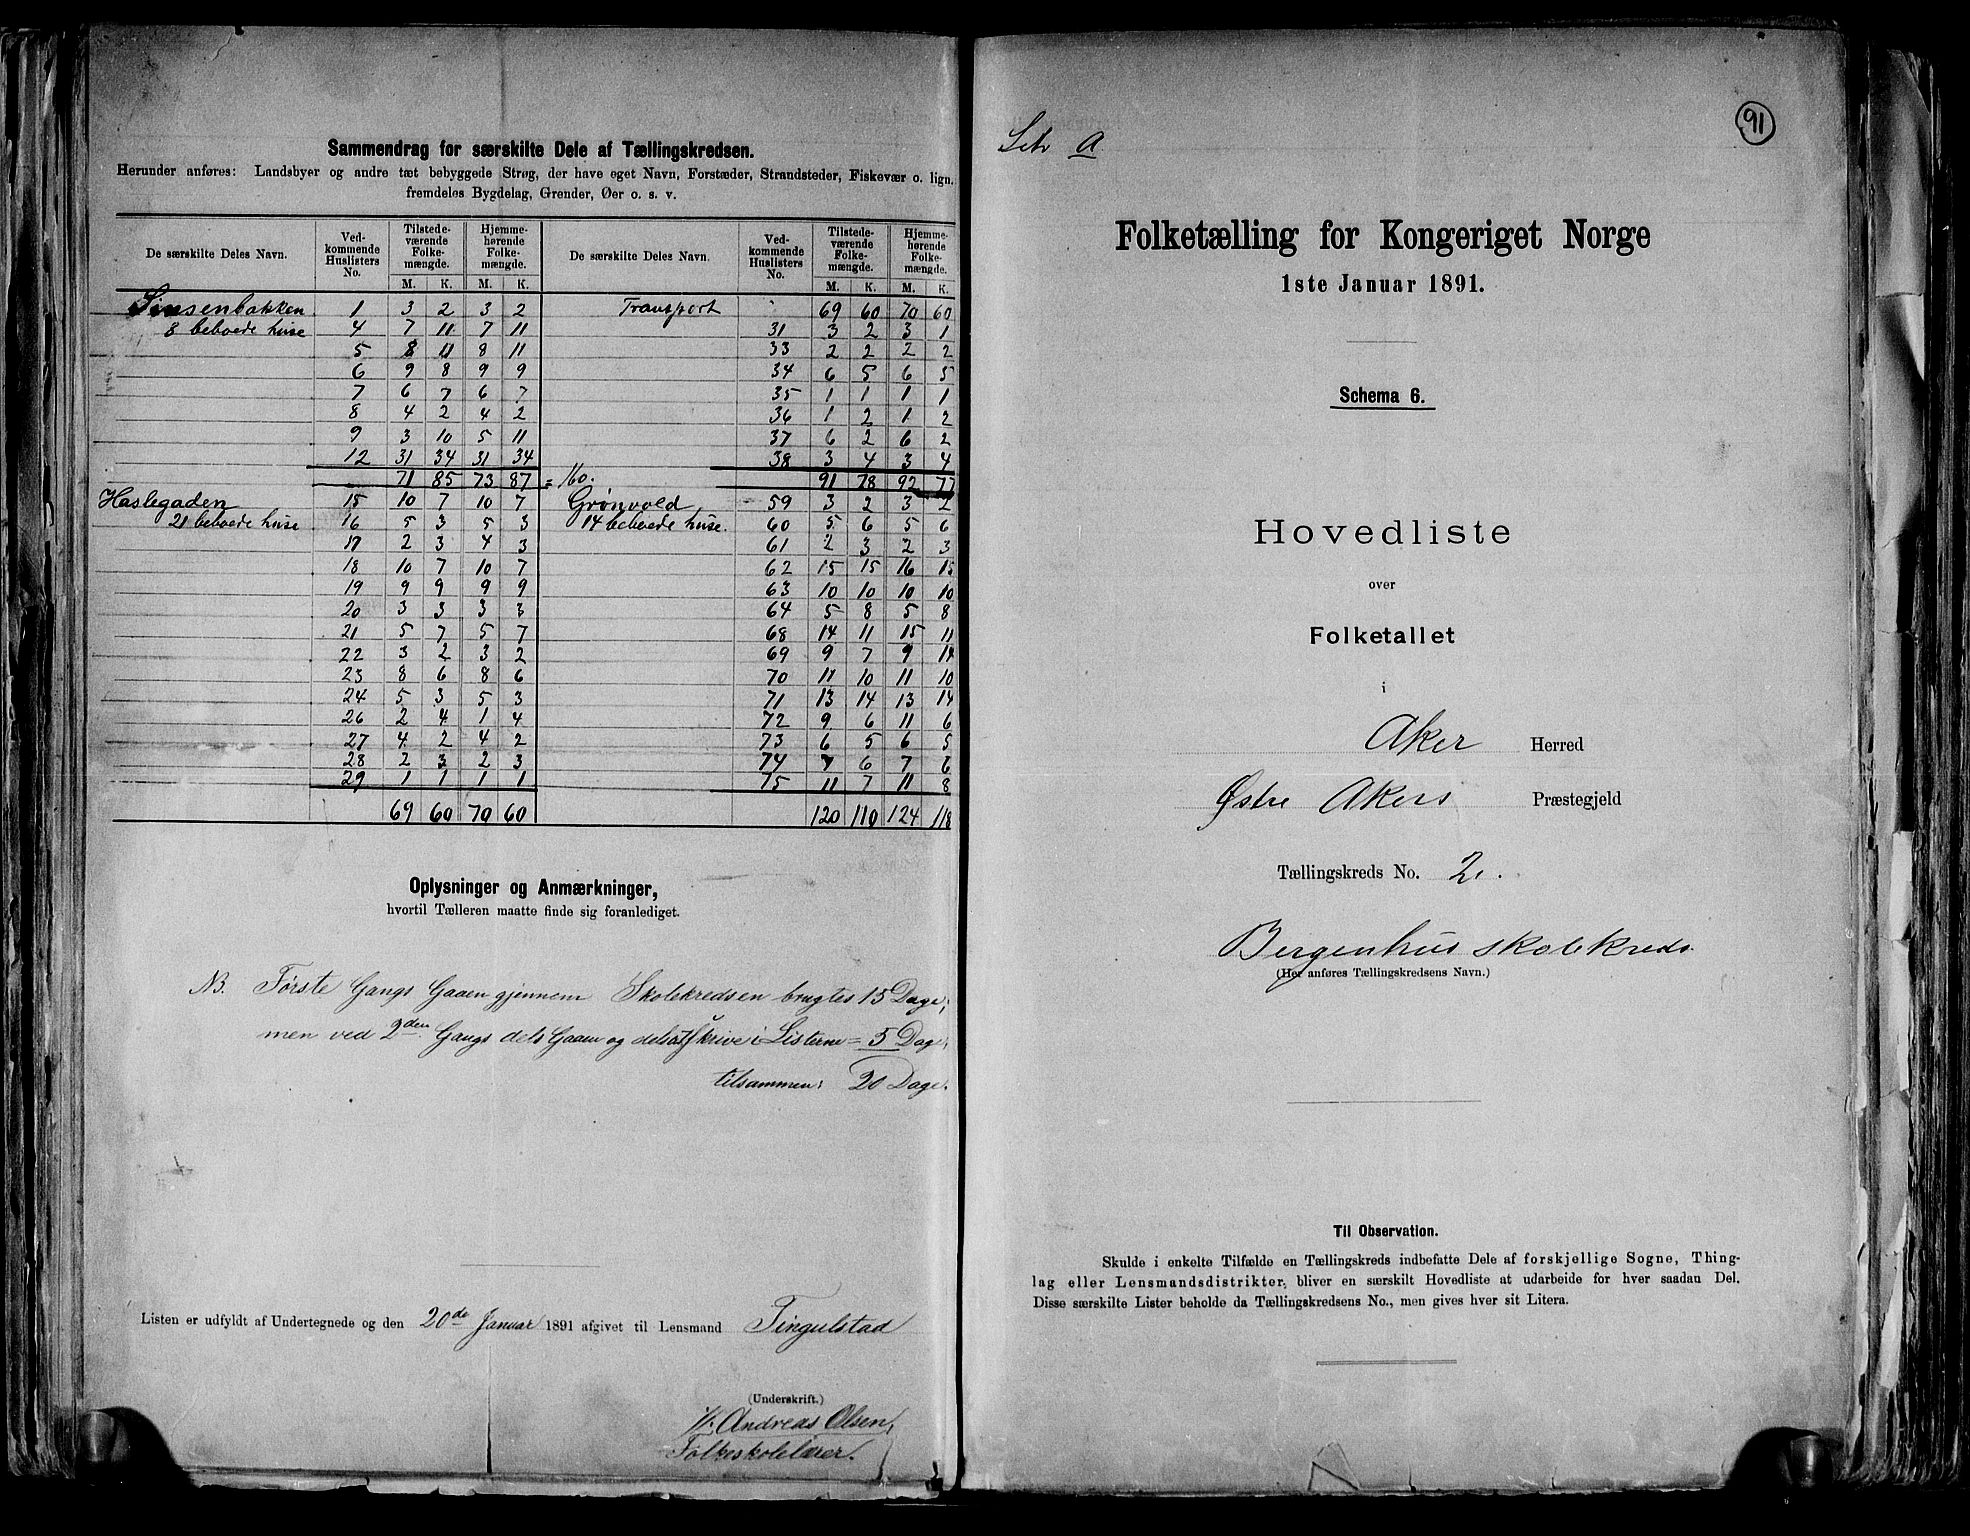 Sammendrag for særskilte Dele af Tællingskredsen.
Herunder anføres: Landsbyer og andre tæt bebyggede Strøg, der have eget Navn, Forstæder, Strandsteder, Fiskevær o. lign.
fremdeles Bygdelag, Grender, Øer o. s. v.
De særskilte Deles Navn. Ved-kommende Huslisters No. Tilstede-værende Folke-mængde. Hjemme-hørende Folke-mængde.
M. K. M. K.
Sinsenbakken 1 3 2 3 2
8 beboede huse 4 7 11 7 11
5 8 11 8 11
6 9 8 9 9
7 6 7 6 7
8 4 2 4 2
9 3 10 5 11
12 31 34 31 34
71 85 73 87 = 160.
Haslegaden 15 10 7 10 7
21 beboede huse 16 5 3 5 3
17 2 3 4 3
18 10 7 10 7
19 9 9 9 9
20 3 3 3 3
21 5 7 5 7
22 3 2 3 2
23 8 6 8 6
24 5 3 5 3
26 2 4 1 4
27 4 2 4 2
28 2 3 2 3
29 1 1 1 1
69 60 70 60
De særskilte Deles Navn. Ved-kommende Huslisters No. Tilstede-værende Folke-mængde. Hjemme-hørende Folke-mængde.
M. K. M. K.
Transport " 69 60 70 60
31 3 2 3 1
33 2 2 2 2
34 6 5 6 5
35 1 1 1 1
36 1 2 1 2
37 6 2 6 2
38 3 4 3 4
91 78 92 77
Grønvold 59 3 2 3 2
14 beboede huse. 60 5 6 5 6
61 2 3 2 3
62 15 15 16 15
63 10 10 10 10
64 5 8 5 8
68 14 11 15 11
69 9 7 9 14
70 11 10 11 10
71 13 14 13 14
72 9 6 11 6
73 6 5 6 5
74 7 6 7 6
75 11 7 11 8
120 110 124 118
Oplysninger og Anmærkninger,
hvortil Tælleren maatte finde sig foranlediget.
NB. Første Gangs Gaaen gjennem Skolekredsen brugtes 15 Dage;
men ved 2den Gangs dels Gaaen og dels at skrive i Listerne = 5 Dag
tilsammen: 20 Dage.
Listen er udfyldt af Undertegnede og den 20de Januar 1891 afgivet til Lensmand Tingulstad
(Underskrift.)
Andreas Olsen,
Folkeskolelærer.
91
Litr A
Folketælling for Kongeriget Norge
1ste Januar 1891.
Schema 6.
Hovedliste
over
Folketallet
i
Aker Herred
Østre Akers Præstegjeld
Tællingskreds No. 2.
Bergenhus skolekreds.
(Her anføres Tællingskredsens Navn.)
Til Observation.
Skulde i enkelte Tilfælde en Tællingskreds indbefatte Dele af forskjellige Sogne, Thing-
lag eller Lensmandsdistrikter, bliver en særskilt Hovedliste at udarbeide for hver saadan Del.
Disse særskilte Lister beholde da Tællingskredsens No., men gives hver sit Litera.